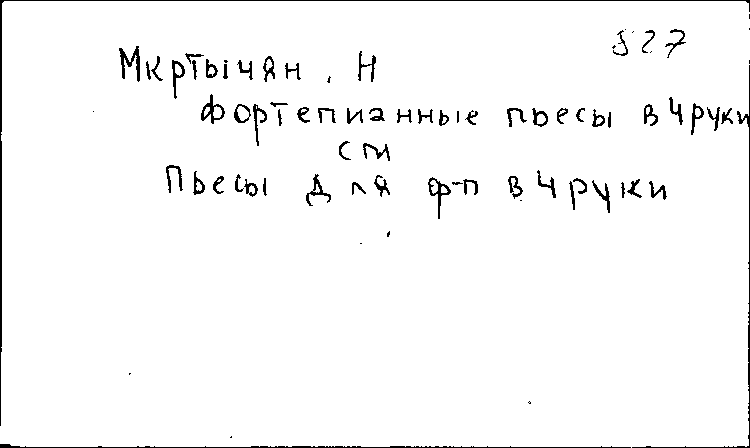 527
Мкртычян, Н
фортепианные пьесы в 4 руки
см
Пьесы для ф-п в 4 руки